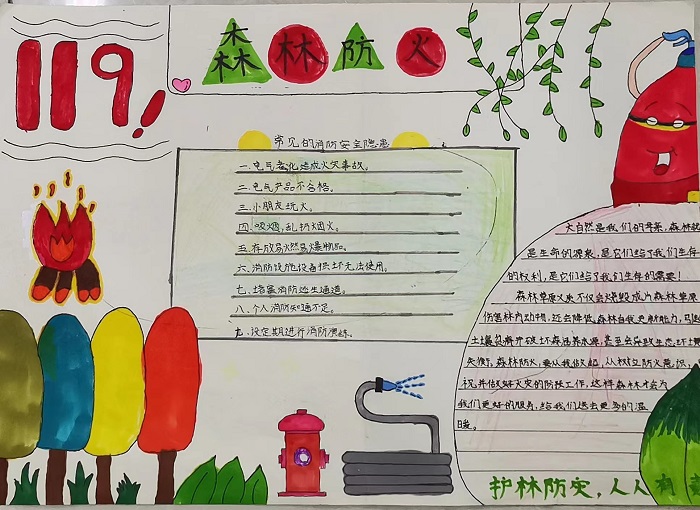 119!
森林防火
常见的消防安全隐患
一.电气老化造成火灾事故。
二.电气产品不合格。
三.小朋友玩火。
四.吸烟,乱扔烟火。
五.存放易燃易爆物品。
六.消防设施设备损坏无法使用。
七.堵塞消防逃生通道。
八.个人消防知识不足。
九.没定期进行消防演练。
大自然是我们的母亲,森林就
是生命的源泉,是它们给了我们生存
的权利,是它们给了我们生存的需要!
森林草原火灾不仅会烧毁成片森林草原
伤害林内动物,还会降低森林自我更新能力,
失衡。森林防火,要从我做起,从树立防火意识,
我们更好的服务,给我们送去更多的温
暖。
护林防灾,人人有